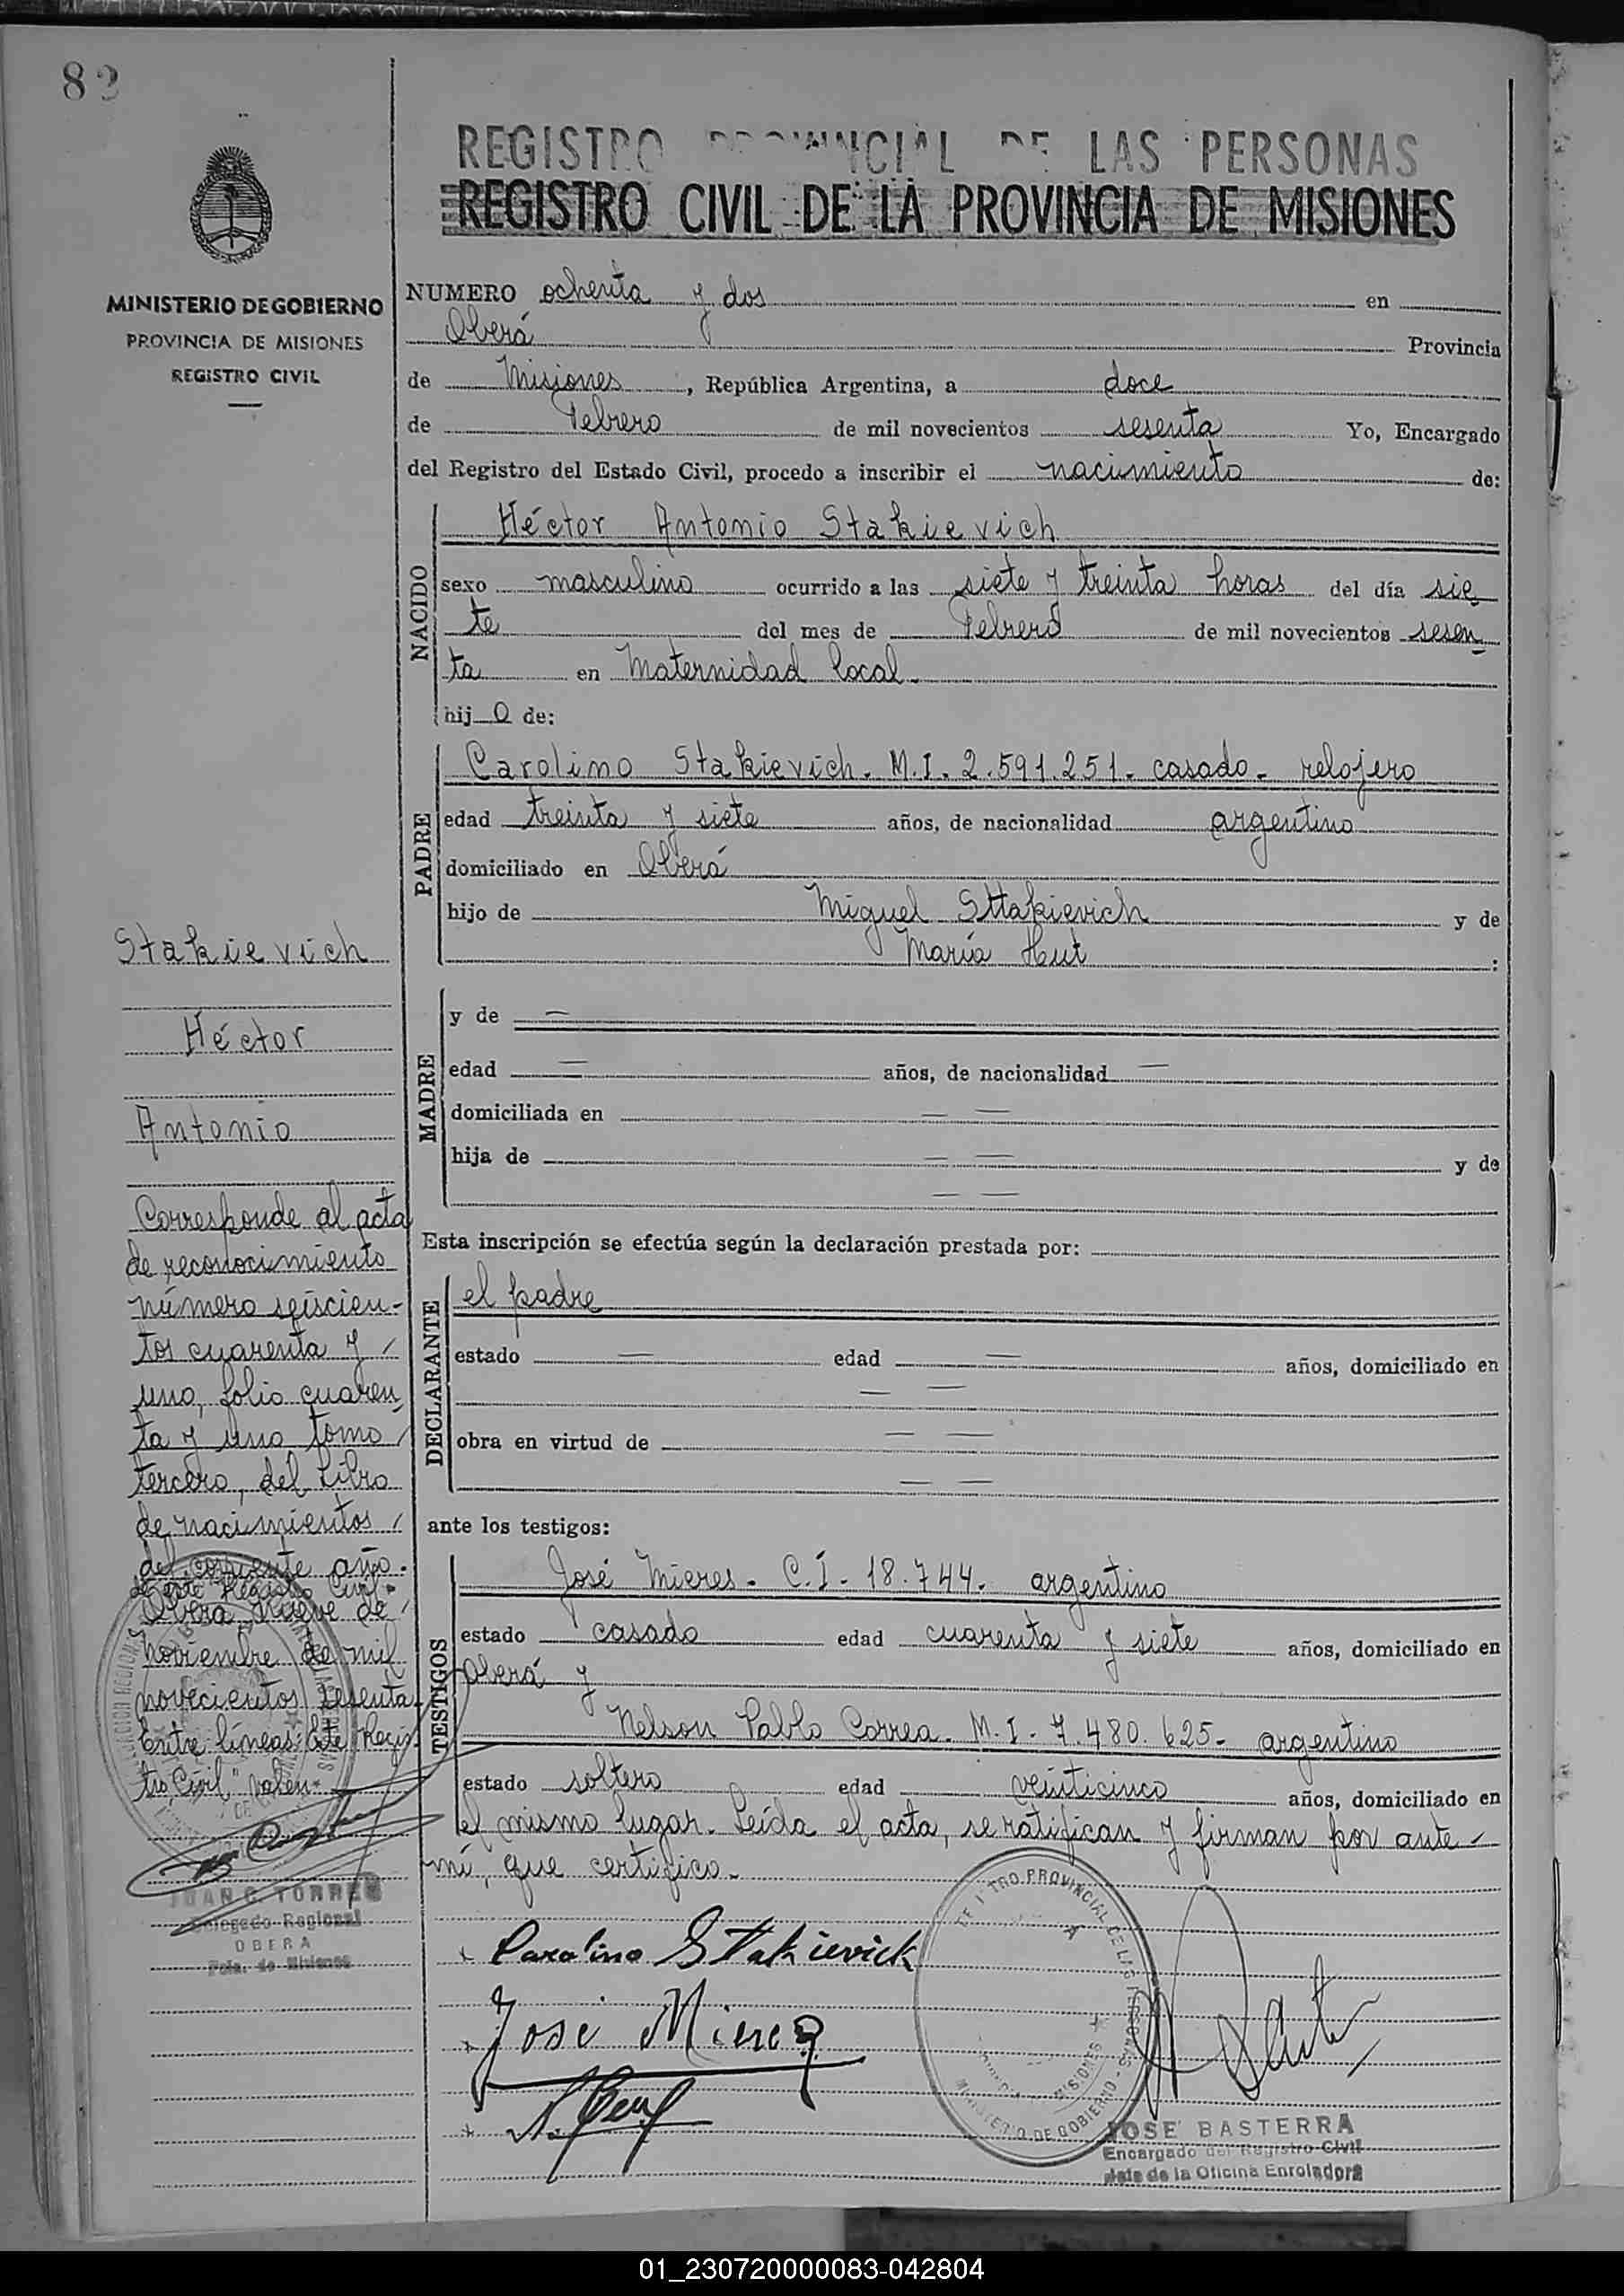 82
REGISTRO PROVINCIAL DE LAS PERSONAS
REGISTRO CIVIL DE LA PROVINCIA DE MISIONES
MINISTERIO DE GOBIERNO
PROVINCIA DE MISIONES
REGISTRO CIVIL
NUMERO ochenta y dos en
Oberá Provincia
de Misiones, República Argentina, a doce
de Febrero de mil novecientos sesenta Yo, Encargado
del Registro del Estado Civil, procedo a inscribir el nacimiento de:
NACIDO
Héctor Antonio Stakievich
sexo masculino ocurrido a las siete y treinta horas del día sie
te del mes de Febrero de mil novecientos sesen
ta en Maternidad local.
hijo de:
PADRE
Carolino Stakievich. M.I. 2.591.251- casado- relojero
edad treinta y siete años, de nacionalidad argentino
domiciliado en Oberá
hijo de Miguel Sttakievich y de
María Hut :
MADRE
y de —
edad — años, de nacionalidad —
domiciliada en — —
hija de — — y de
— —
Esta inscripción se efectúa según la declaración prestada por:
DECLARANTE
el padre
estado — edad — años, domiciliado en
— —
obra en virtud de — —
— —
ante los testigos:
TESTIGOS
José Mieres- C.I- 18.744- argentino
estado casado edad cuarenta y siete años, domiciliado en
Oberá y
Nelson Pablo Correa. M.I- 7.480.625- argentino
estado soltero edad veinticinco años, domiciliado en
el mismo lugar. Leída el acta, se ratifican y firman por ante
mí, que certifico-
Carolino Sttakievick
Jose Mieres
JOSE BASTERRA
Encargado del Registro Civil
Jefe de la Oficina Enroladora
Stakievich
Héctor
Antonio
Corresponde al acta
de reconocimiento
número seiscien-
tos cuarenta y
uno, folio cuaren
ta y uno tomo
tercero, del Libro
de nacimientos
del corriente año.
de este Registro Civil-
Oberá, nueve de
noviembre de mil
novecientos sesenta
Entre líneas: Este Regis
tro Civil" valen-
JUAN C. TORRES
Delegado Regional
OBERA
Pcia. de Misiones
01_230720000083-042804